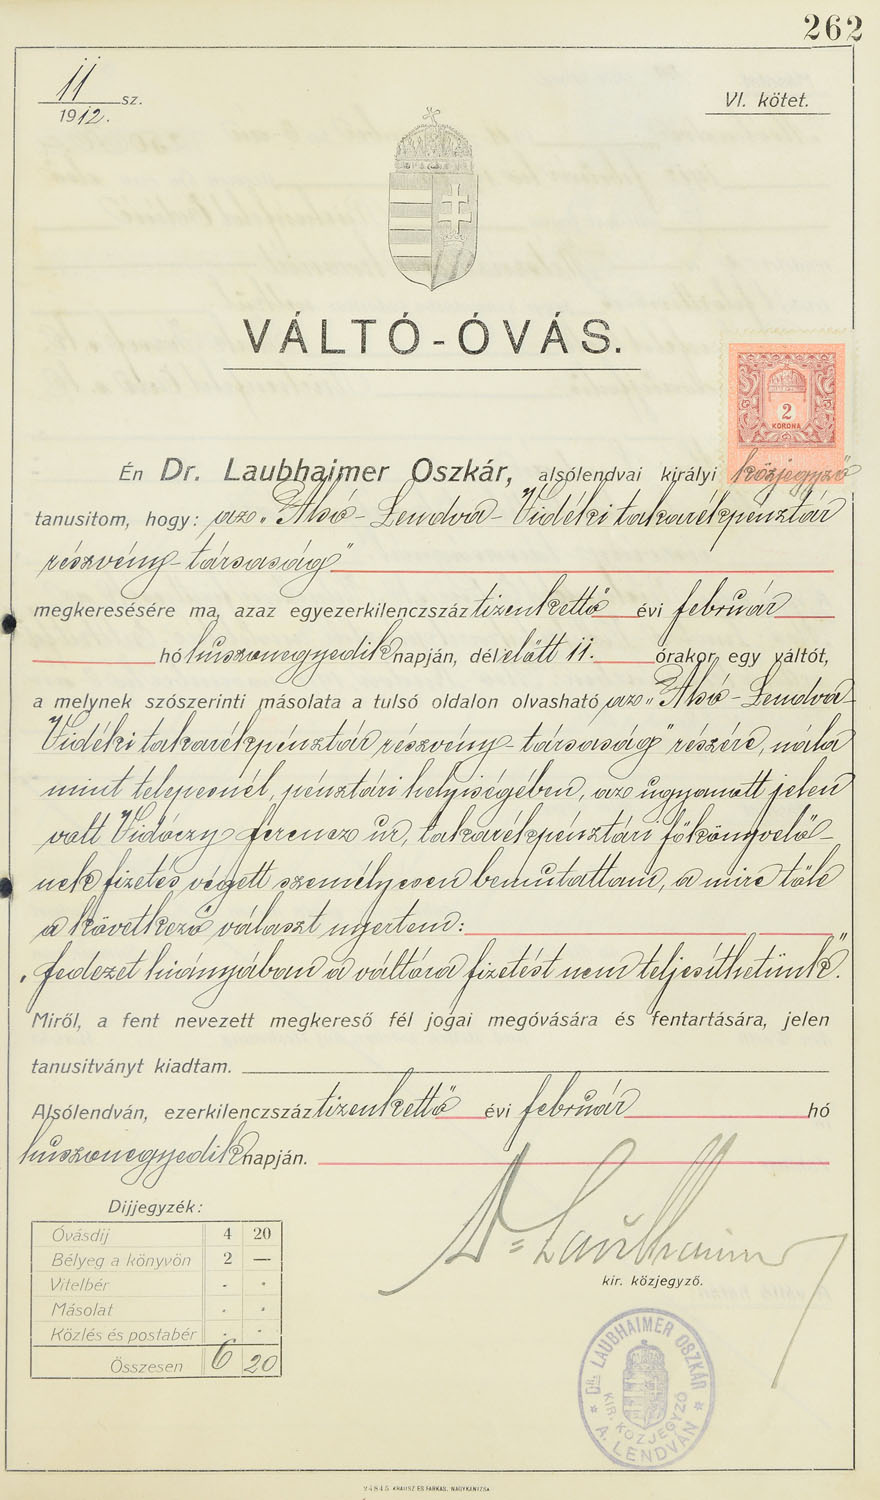 262
11 sz.
1912.
VI. kötet.
VÁLTÓ-ÓVÁS.
2
KORONA
Én Dr. Laubhaimer Oszkár, alsólendvai királyi közjegyző
tanusitom, hogy: az „Alsó-Lendva-Vidéki takarékpénztár
részvény-társaság"
megkeresésére ma, azaz egyezerkilenczszáz tizenkettő évi február
hó huszonegyedik napján, dél előtt 11. órakor egy váltót,
a melynek szószerinti másolata a tulsó oldalon olvasható az „Alsó-Lendva
Vidéki takarékpénztár részvény-társaság" részére, nála
mint telepesnél, pénztári helyiségében, az ugyanott jelen
volt Vidóczy Ferencz úr, takarékpénztári főkönyvelő-
nek fizetés végett személyesen bemutattam, a mire tőle
a következő választ nyertem:
„fedezet hiányában a váltóra fizetést nem teljesíthetünk".
Miről, a fent nevezett megkereső fél jogai megóvására és fentartására, jelen
tanusitványt kiadtam.
Alsólendván, ezerkilenczszáz tizenkettő évi február hó
huszonegyedik napján.
Dr. Laubhaimer
kir. közjegyző.
Dijjegyzék:
Óvásdij 4 20
Bélyeg a könyvön 2 —
Vitelbér - •
Másolat • •
Közlés és postabér - •
Összesen 6 20
DR. LAUBHAIMER OSZKÁR
KIR. KÖZJEGYZŐ
* A. LENDVÁN *
24845 KRAUSZ ÉS FARKAS, NAGYKANIZSA